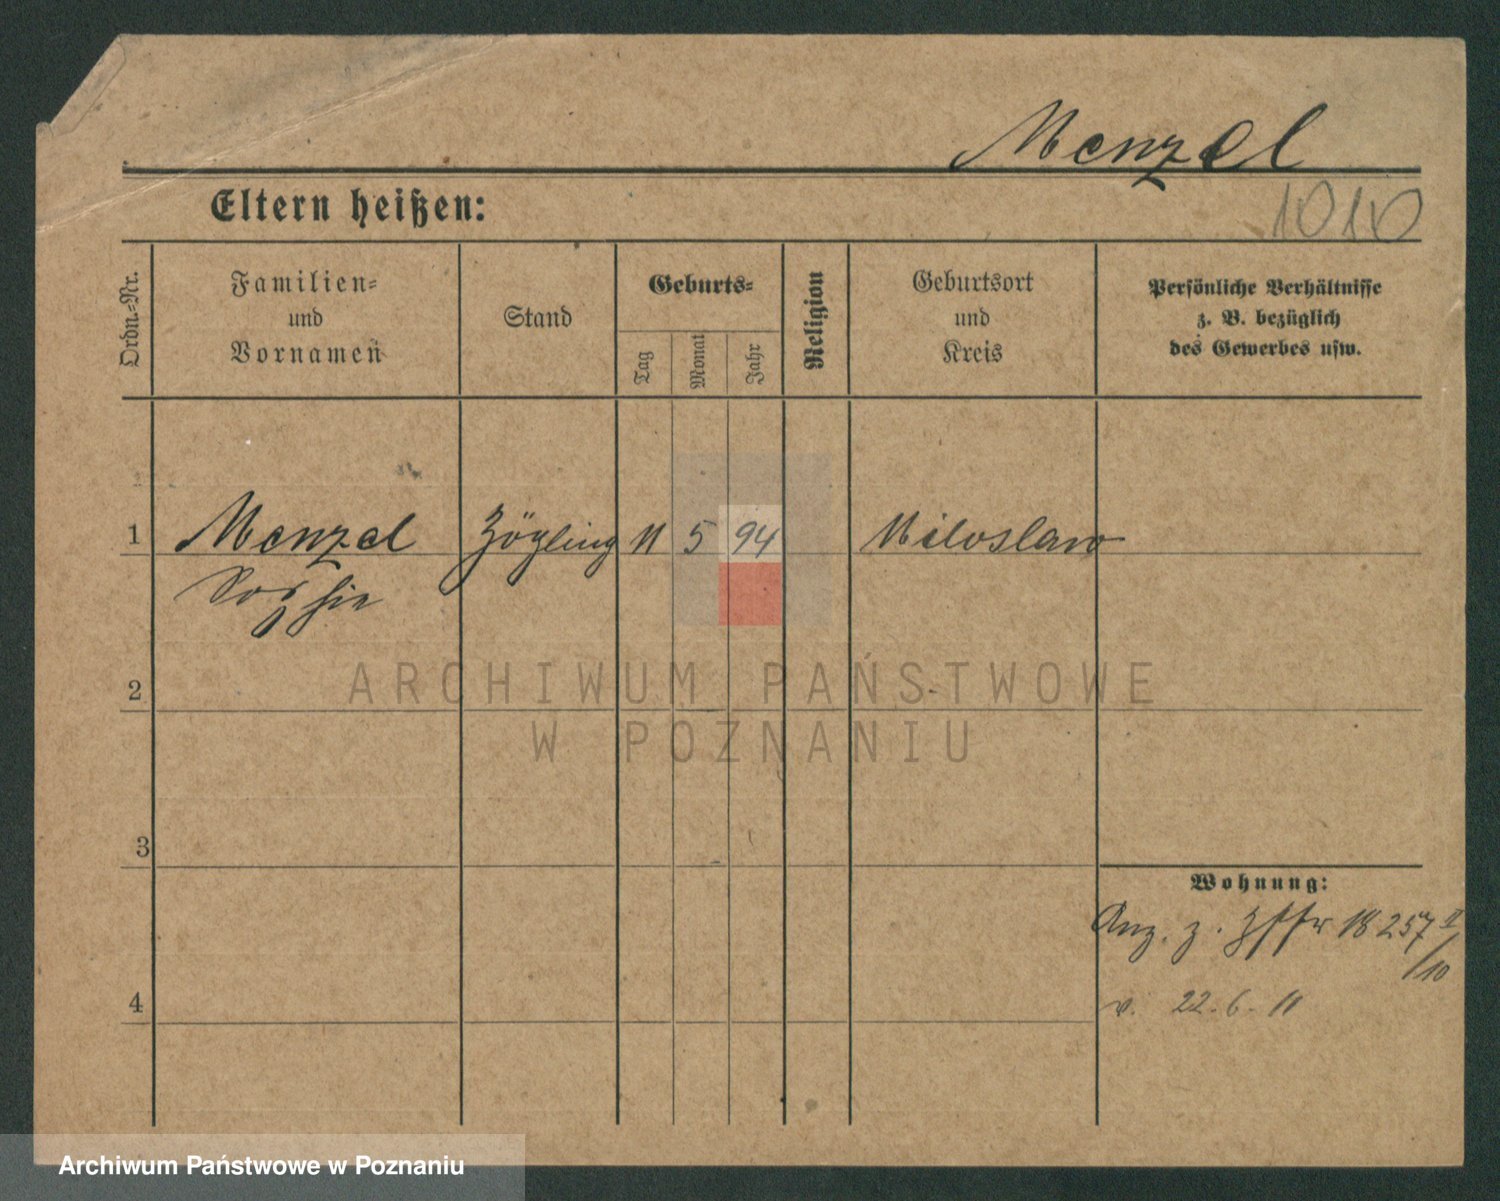 Menzel
1010
Eltern heißen:
Ordn.-Nr.
Familien-
und
Vornamen
Stand
Geburts-
Tag
Monat
Jahr
Religion
Geburtsort
und
Kreis
Persönliche Verhältnisse
z. B. bezüglich
des Gewerbes usw.
1 Menzel Zögling 11 5 94 Miloslaw
Sophie
2
ARCHIWUM PAŃSTWOWE
W POZNANIU
3
Wohnung:
Anz. z. 18257 II
/10
4
v. 22.6.11
Archiwum Państwowe w Poznaniu